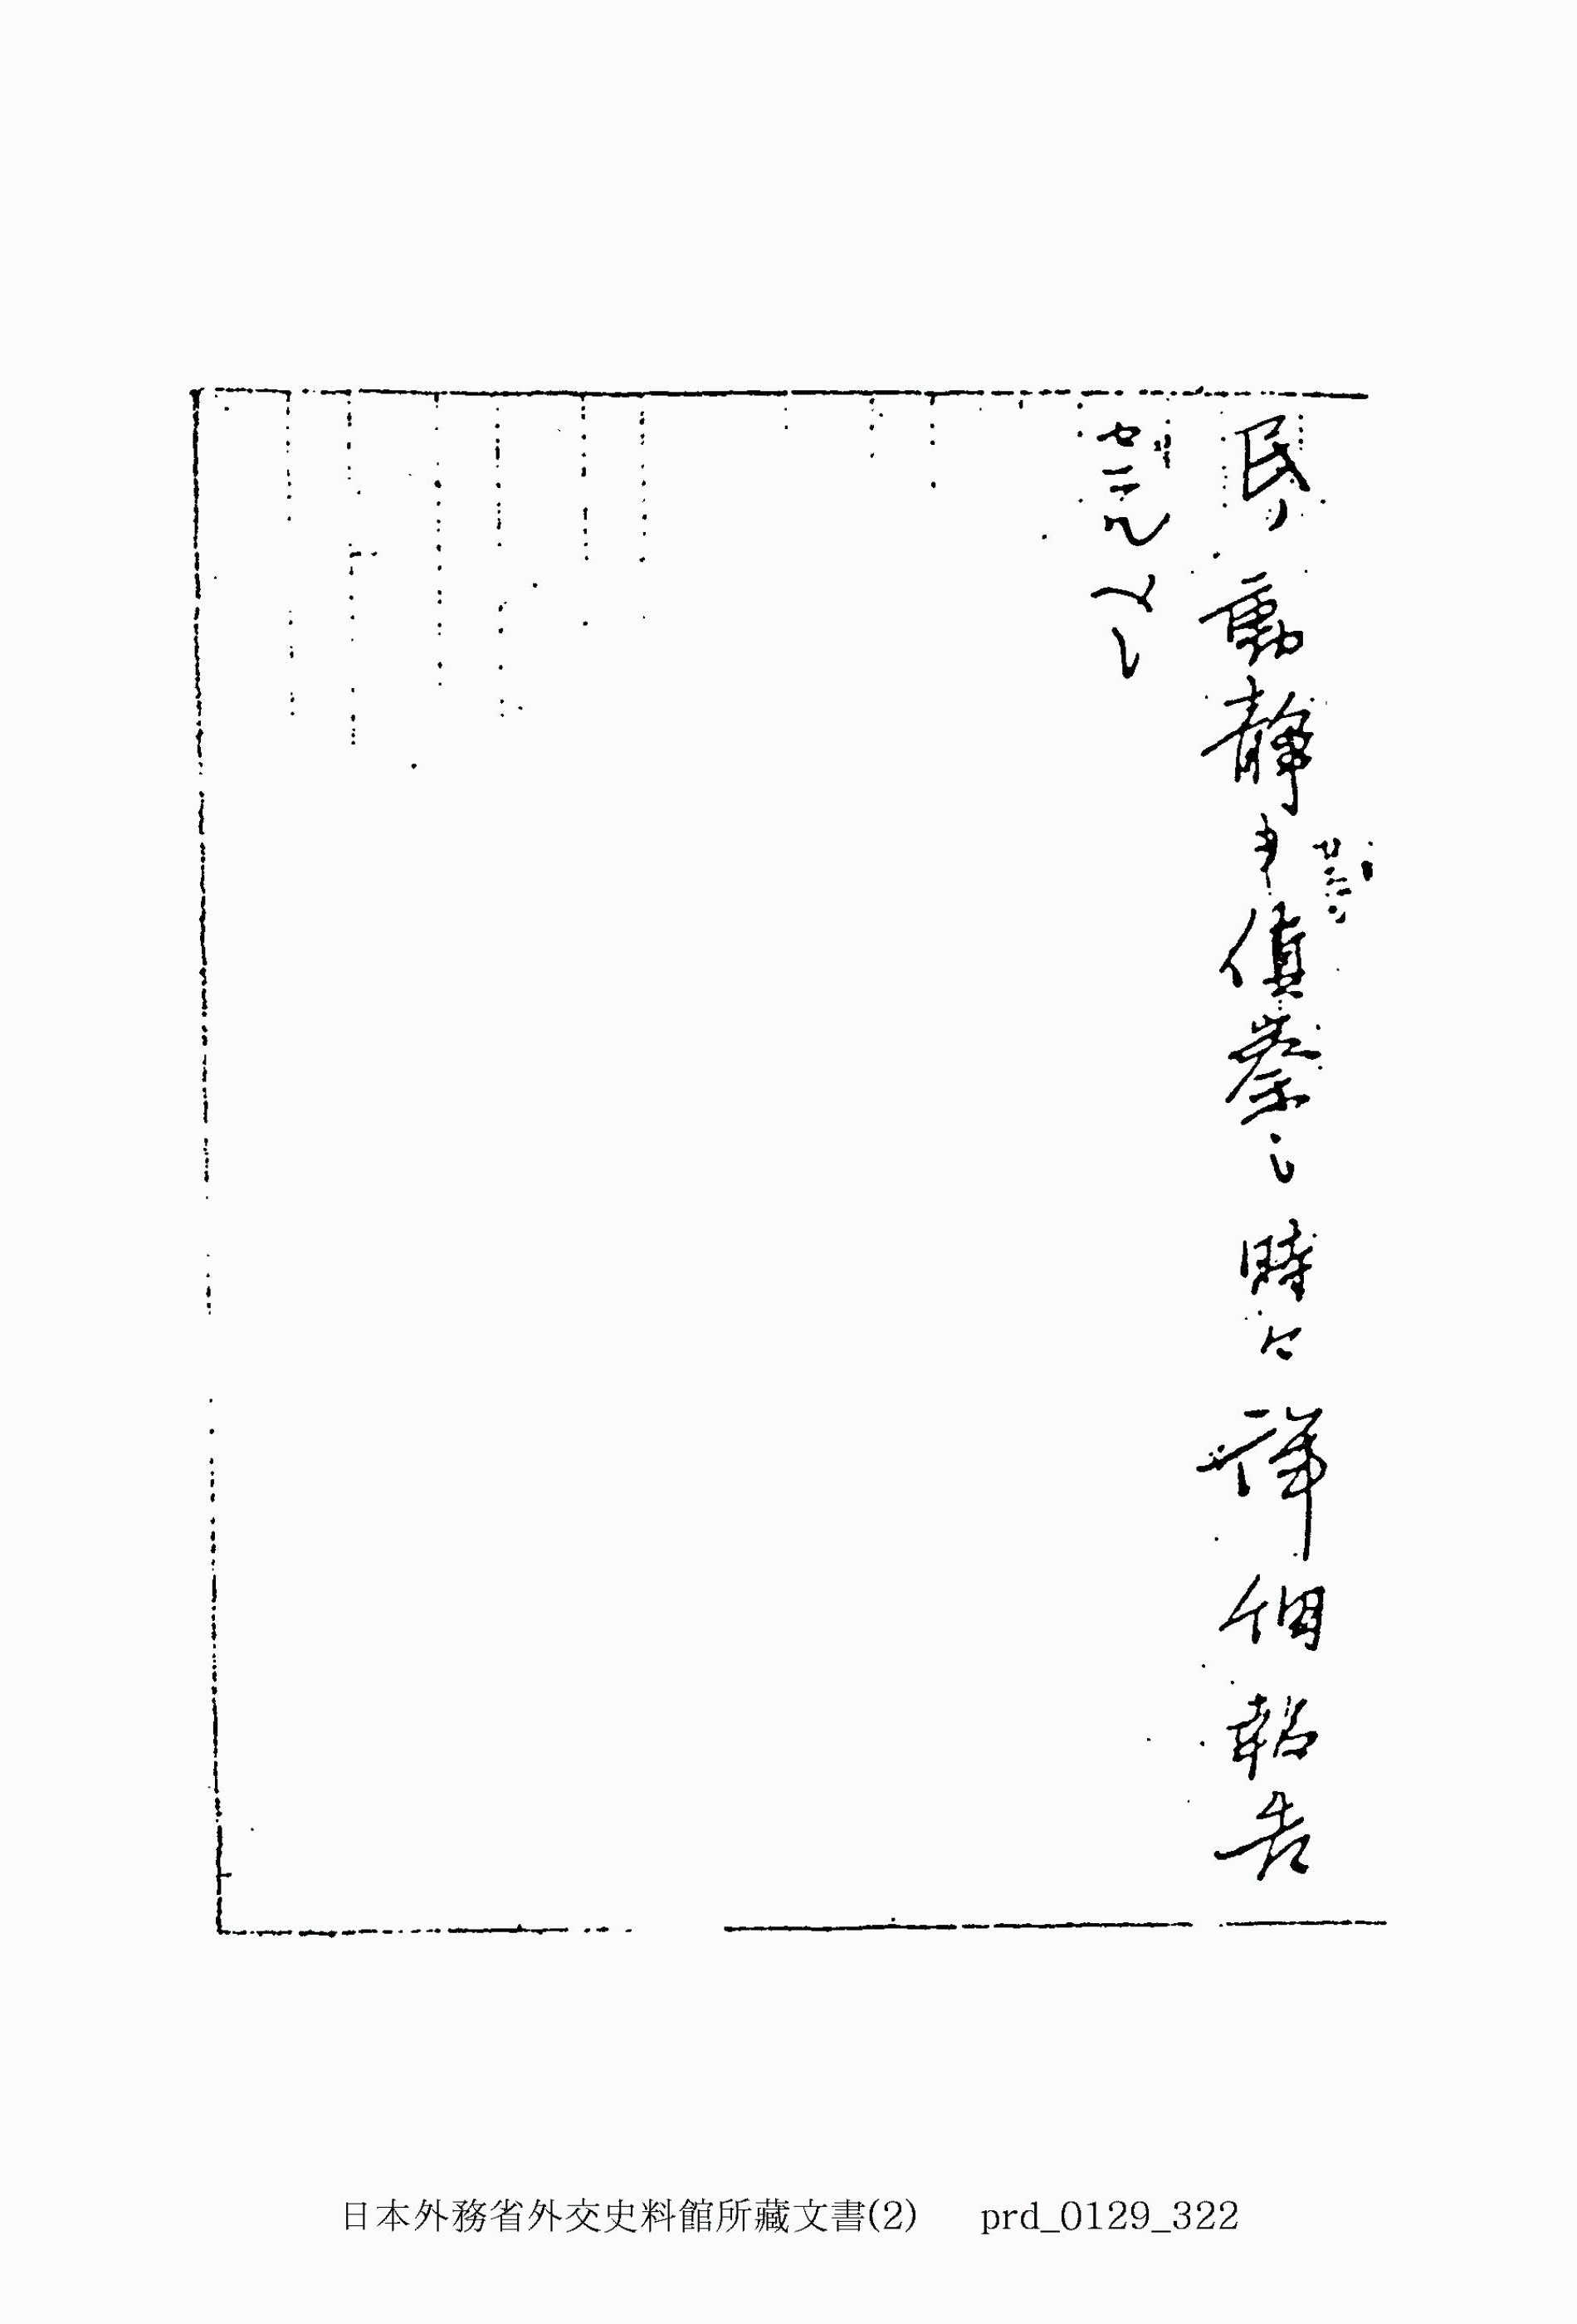 民ノ動静ヲ偵察シ時々詳細報告
セラルヘシ
日本外務省外交史料館所藏文書(2) prd_0129_322